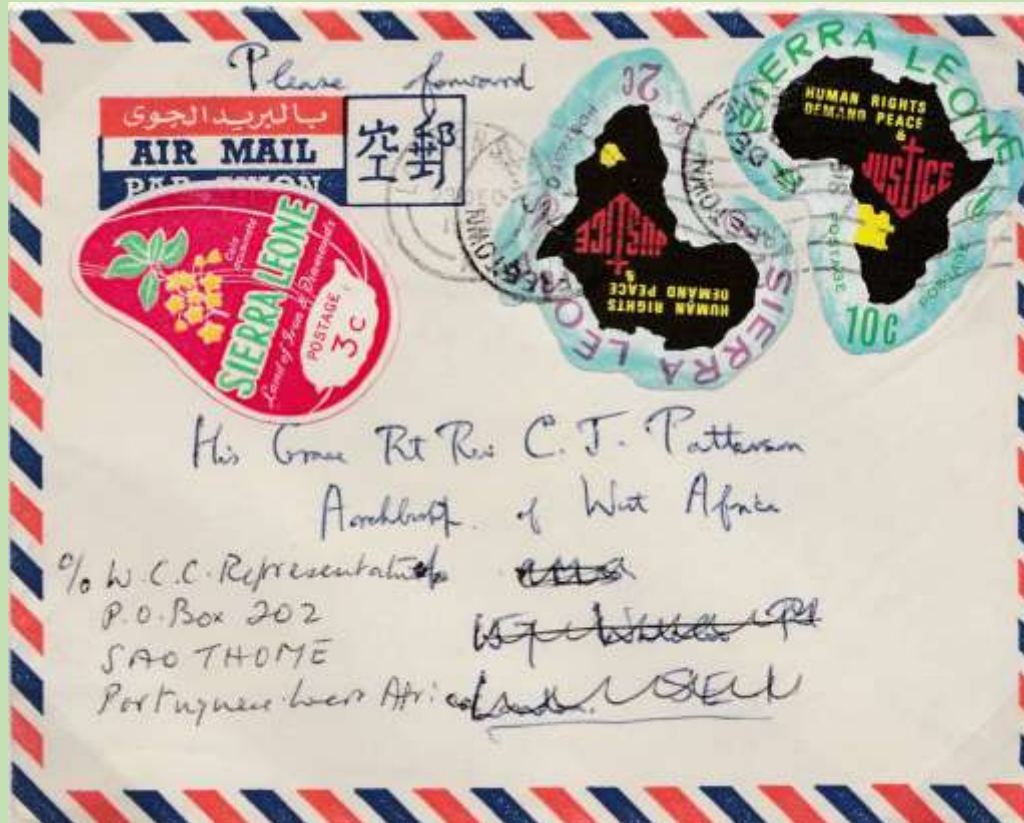 Please forward
بالبريد الجوى
AIR MAIL
空郵
PAR AVION
SIERRA LEONE
Land of Iron & Diamonds
POSTAGE
3c
2c
SIERRA LEONE
HUMAN RIGHTS
DEMAND PEACE
&
JUSTICE
SIERRA LEONE
HUMAN RIGHTS
DEMAND PEACE
&
JUSTICE
POSTAGE
10c
FREETOWN
His Grace Rt Rev C. J. Patterson
Archbishop of West Africa
c/o W.C.C. Representative
P.O. Box 202
SAO THOME
Portuguese West Africa